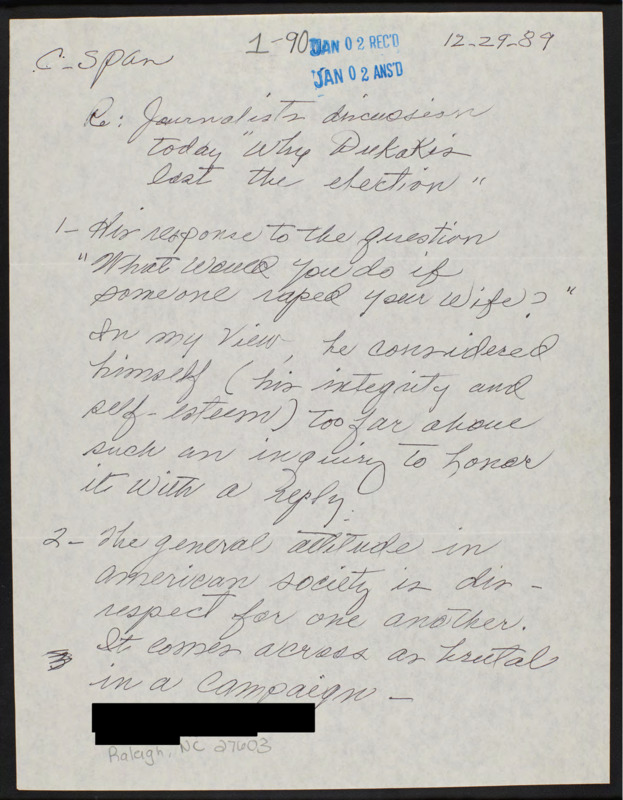 C-Span
1-90
JAN 02 REC'D
12-29-89
JAN 02 ANS'D
Re: Journalists discussion
today "Why Dukakis
lost the election"
1- His response to the question
"What would you do if
someone raped your wife?"
In my view, he considered
himself (his integrity and
self-esteem) too far above
such an inquiry to honor
it with a reply.
2- The general attitude in
american society is dis-
respect for one another.
It comes across as brutal
in a campaign -
Raleigh, NC 27603